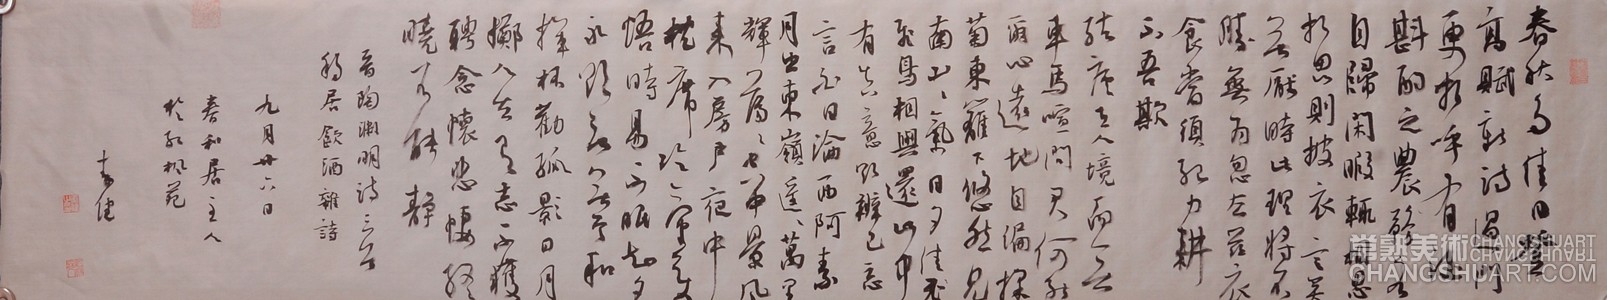 春秋多佳日登
高賦新詩過門
更相呼有酒
斟酌之農務各
自歸閑暇輒相思
相思則披衣言笑
無厭時此理將不
勝無為忽去茲衣
食當須紀力耕
不吾欺
結廬在人境而無
車馬喧問君何能
爾心遠地自偏採
菊東籬下悠然見
南山〻氣日夕佳
飛鳥相與還此中
有真意欲辨已忘
言白日淪西阿素
月出東嶺遙〻萬里
輝蕩〻空中景風
來入房戶夜中
枕席冷氣變
悟時易不眠知夕
永欲言無予和
揮杯勸孤影日月
擲人去有志不獲
騁念懷悲悽終
曉不能靜
晉陶淵明詩三首
移居飲酒雜詩
九月廿六日
春和居主人
於紅楓苑
尚熟美術 CHANGSHUART
CHANGSHUART.COM